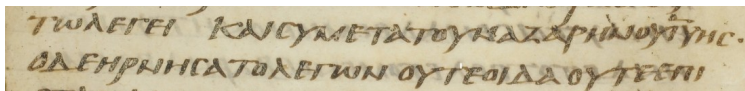 τωλεγει και συμετατουναζαρηνουιυης·
οδεηρνησατολεγωνουτεοιδαουτεεπι